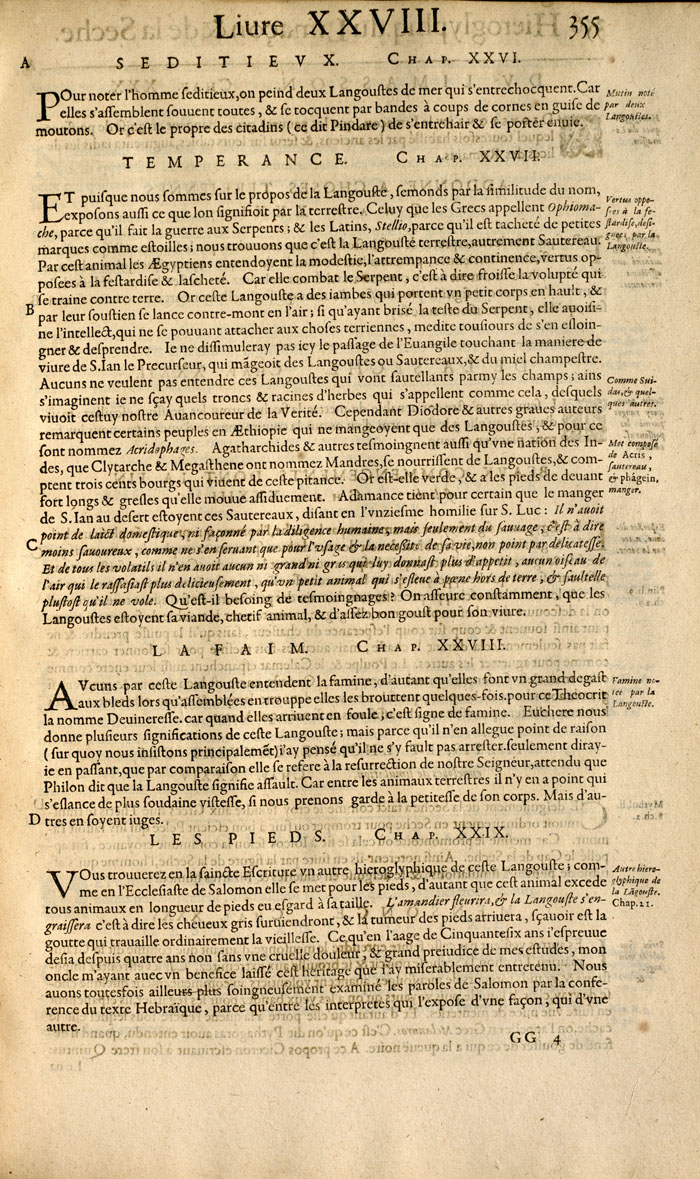 Liure XXVIII. 355
A SEDITIEVX. CHAP. XXVI.
POur noter l'homme seditieux, on peind deux Langoustes de mer qui s'entrechocquent. Car
elles s'assemblent souuent toutes, & se tocquent par bandes à coups de cornes en guise de
moutons. Or c'est le propre des citadins (ce dit Pindare) de s'entrehair & se porter enuie.
Mutin noté
par deux
Langoustes.
TEMPERANCE. CHAP. XXVII.
ET puisque nous sommes sur le propos de la Langouste, semonds par la similitude du nom,
exposons aussi ce que lon signifioit par la terrestre. Celuy que les Grecs appellent Ophioma-
che, parce qu'il fait la guerre aux Serpents; & les Latins, Stellio, parce qu'il est tacheté de petites
marques comme estoilles; nous trouuons que c'est la Langouste terrestre, autrement Sautereau.
Par cest animal les Ægyptiens entendoyent la modestie, l'attrempance & continence, vertus op-
posées à la festardise & lascheté. Car elle combat le Serpent, c'est à dire froisse la volupté qui
se traine contre terre. Or ceste Langouste a des iambes qui portent vn petit corps en hault, &
B par leur soustien se lance contre-mont en l'air; si qu'ayant brisé la teste du Serpent, elle auoisi-
ne l'intellect, qui ne se pouuant attacher aux choses terriennes, medite tousiours de s'en esloin-
gner & desprendre. Ie ne dissimuleray pas icy le passage de l'Euangile touchant la maniere de
viure de S. Ian le Precurseur, qui mãgeoit des Langoustes ou Sautereaux, & du miel champestre.
Aucuns ne veulent pas entendre ces Langoustes qui vont sautellants parmy les champs; ains
s'imaginent ie ne sçay quels troncs & racines d'herbes qui s'appellent comme cela, desquels
viuoit cestuy nostre Auancoureur de la Verité. Cependant Diodore & autres graues auteurs
remarquent certains peuples en Æthiopie qui ne mangeoyent que des Langoustes, & pour ce
sont nommez Acridophages. Agatharchides & autres tesmoingnent aussi qu'vne nation des In-
des, que Clytarche & Megasthene ont nommez Mandres, se nourrissent de Langoustes, & com-
ptent trois cents bourgs qui viuent de ceste pitance. Or est-elle verde, & a les pieds de deuant
fort longs & gresles qu'elle mouue assiduement. Adamance tient pour certain que le manger
de S. Ian au desert estoyent ces Sautereaux, disant en l'vnziesme homilie sur S. Luc: Il n'auoit
point de laict domestique, ni façonné par la diligence humaine, mais seulement du sauuage, c'est à dire
C moins sauoureux, comme ne s'en seruant que pour l'vsage & la necessité de sa vie, non point par delicatesse.
Et de tous les volatils il n'en auoit aucun ni grand ni gras qui luy donnast plus d'appetit, aucun oiseau de
l'air qui le rassasiast plus delicieusement, qu'vn petit animal qui s'esleue à pœne hors de terre, & saultelle
plustost qu'il ne vole. Qu'est-il besoing de tesmoingnages? On asseure constamment, que les
Langoustes estoyent sa viande, chetif animal, & d'assez bon goust pour son viure.
Vertus oppo-
sées à la fe-
stardise, desi-
gnées par la
Langouste.
Comme Sui-
das, & quel-
ques autres.
Mot composé
de Acris,
sautereau,
& phágein,
manger.
LA FAIM. CHAP. XXVIII.
AVcuns par ceste Langouste entendent la famine, d'autant qu'elles font vn grand degast
aux bleds lors qu'assemblées en trouppe elles les brouttent quelques-fois. pour ce Theocrit
la nomme Deuineresse. car quand elles arriuent en foule, c'est signe de famine. Euchere nous
donne plusieurs significations de ceste Langouste; mais parce qu'il n'en allegue point de raison
(sur quoy nous insistons principalemẽt) i'ay pensé qu'il ne s'y fault pas arrester. seulement diray-
ie en passant, que par comparaison elle se refere à la resurrection de nostre Seigneur, attendu que
Philon dit que la Langouste signifie assault. Car entre les animaux terrestres il n'y en a point qui
s'eslance de plus soudaine vistesse, si nous prenons garde à la petitesse de son corps. Mais d'au-
D tres en soyent iuges.
Famine no-
tée par la
Langouste.
LES PIEDS. CHAP. XXIX.
VOus trouuerez en la saincte Escriture vn autre hieroglyphique de ceste Langouste; com-
me en l'Ecclesiaste de Salomon elle se met pour les pieds, d'autant que cest animal excede
tous animaux en longueur de pieds eu esgard à sa taille. L'amandier fleurira, & la Langouste s'en-
graissera c'est à dire les cheueux gris suruiendront, & la tumeur des pieds arriuera, sçauoir est la
goutte qui trauaille ordinairement la vieillesse. Ce qu'en l'aage de Cinquantesix ans i'espreuue
desia despuis quatre ans non sans vne cruelle douleur, & grand preiudice de mes estudes, mon
oncle m'ayant auec vn benefice laissé cest heritage que i'ay miserablement entretenu. Nous
auons toutesfois ailleurs plus soingneusement examiné les paroles de Salomon par la confe-
rence du texte Hebraïque, parce qu'entre les interpretes qui l'expose d'vne façon, qui d'vne
autre.
Autre hiero-
glyphique de
la Lãgouste.
Chap. 21.
GG 4